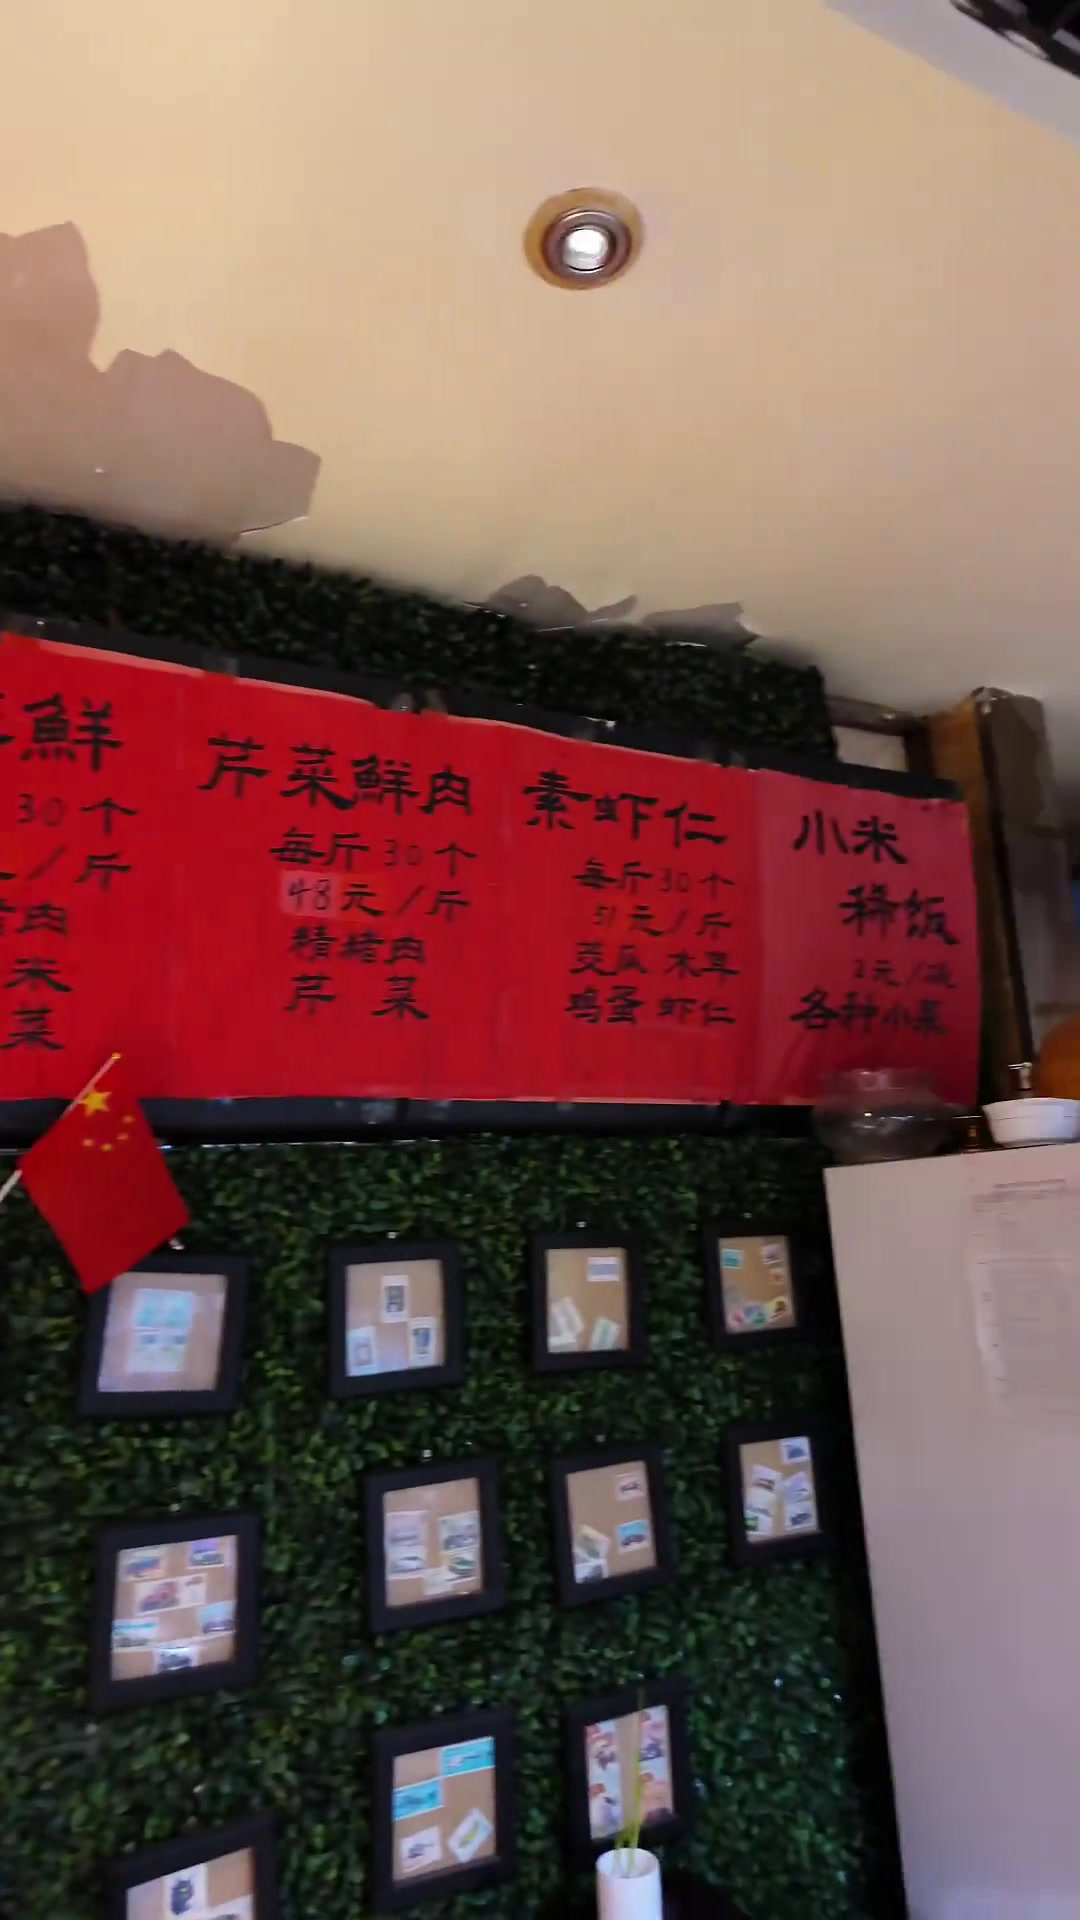 鮮
30个
/斤
肉
米
菜
芹菜鮮肉
每斤30个
48元/斤
精猪肉
芹 菜
素虾仁
每斤30个
51元/斤
茭瓜 木耳
鸡蛋 虾仁
小米
稀饭
2元/碗
各种小菜